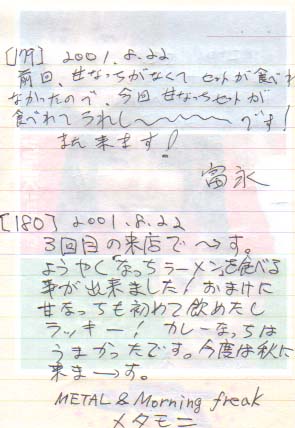 [179] 2001.8.22
前回、甘なっちがなくてセットが食べれ
なかったので、今回甘なっちセットが
食べれてうれし〜〜〜〜です!
また来ます!
富永
[180] 2001.8.22
3回目の来店で〜す。
ようやく"なっちラーメン"を食べる
事が出来ました!おまけに
甘なっちも初めて飲めたし
ラッキー! カレーなっちは
うまかったです。今度は秋に
来まーす。
METAL & Morning freak
メタモニ